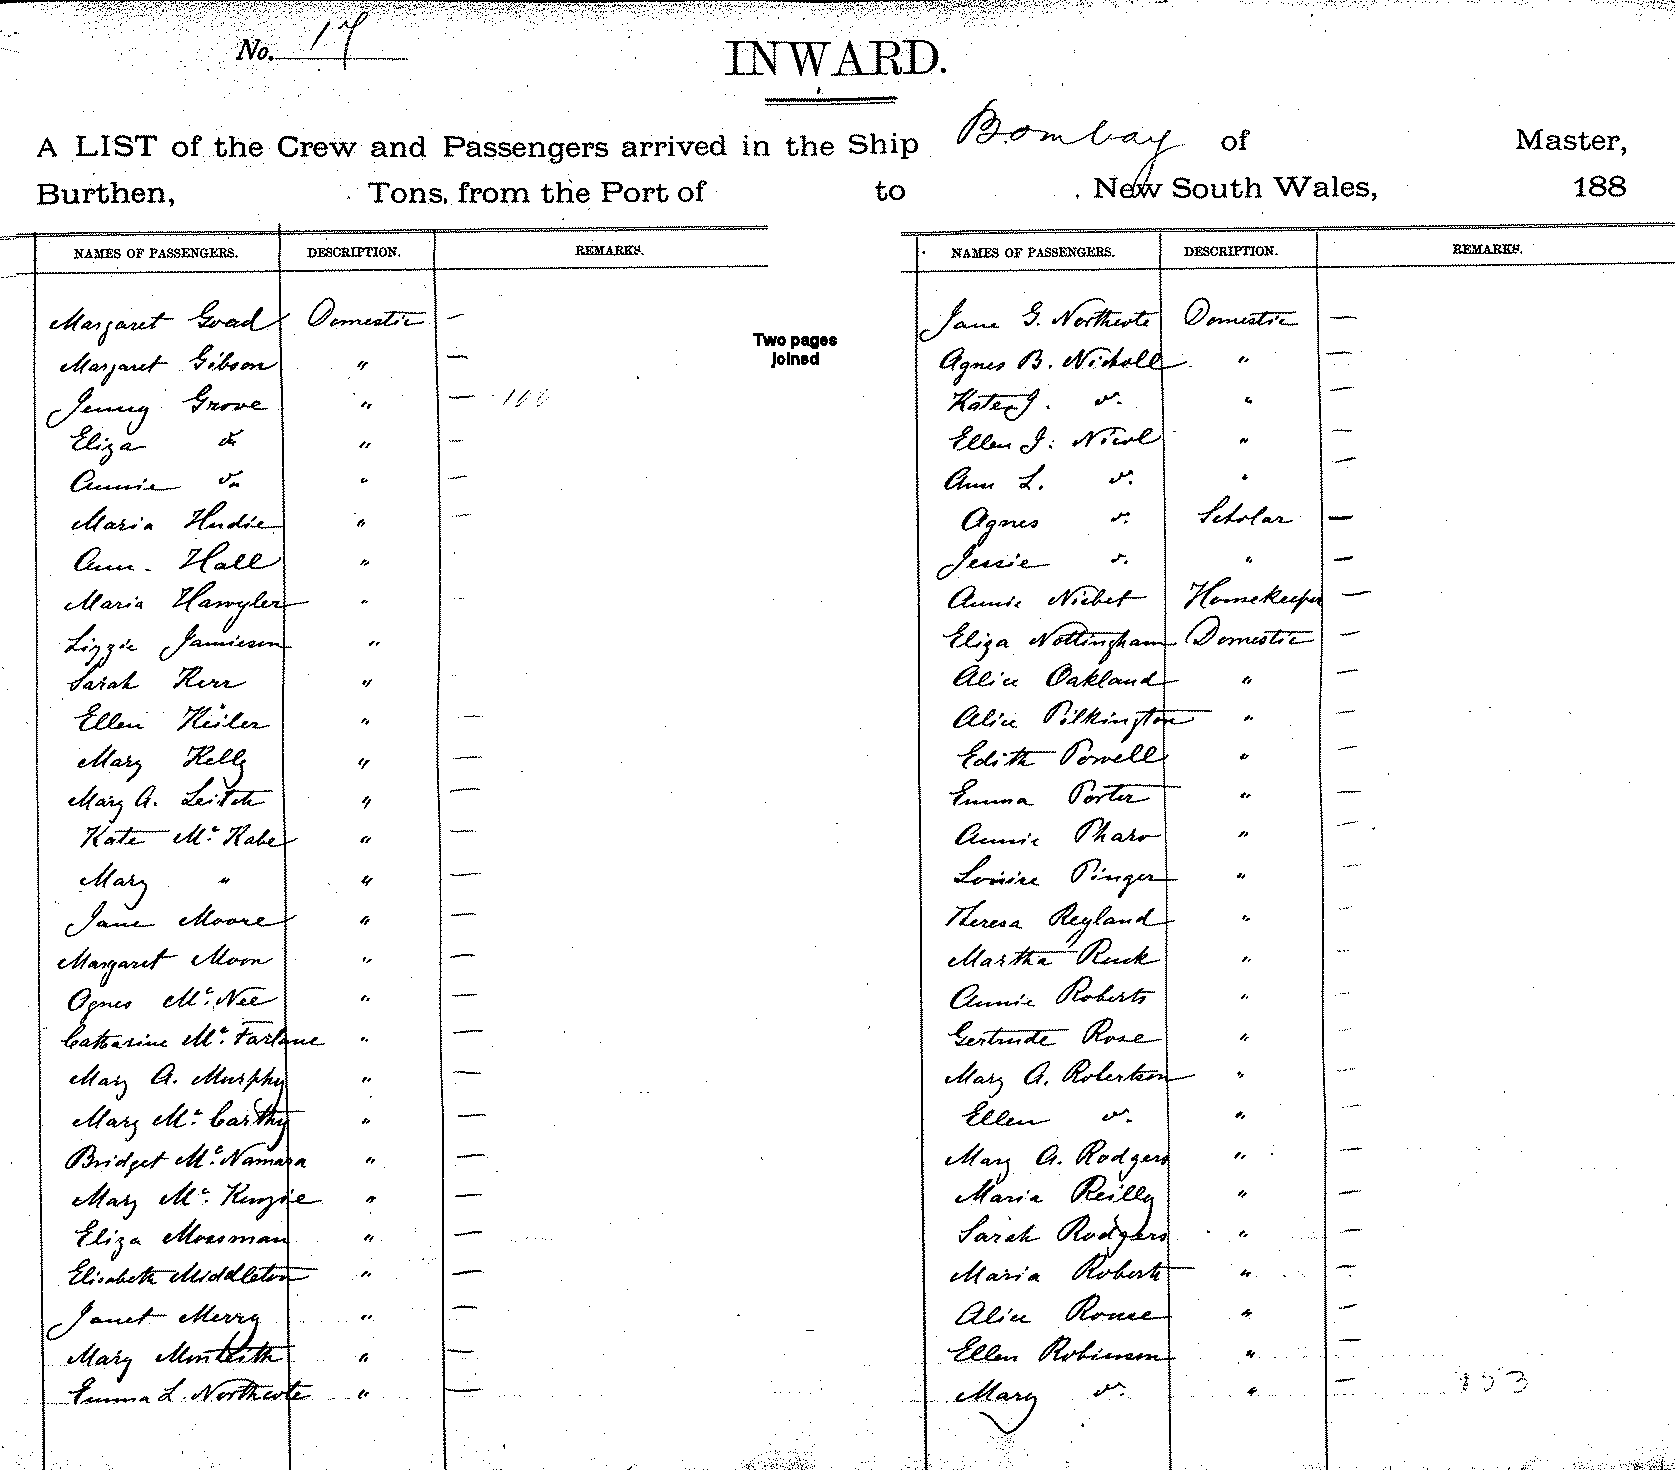 No. 17
INWARD.
A LIST of the Crew and Passengers arrived in the Ship Bombay of Master,
Burthen, Tons, from the Port of to New South Wales, 188
NAMES OF PASSENGERS. DESCRIPTION. REMARKS.
Margaret Goad Domestic —
Margaret Gibson " —
Jenny Grove " —
Eliza do " —
Annie do " —
Maria Hudie " —
Ann. Hall "
Maria "
Lizzie Jamieson "
Sarah Kerr "
Ellen Keiler " —
Mary Kelly " —
Mary A. Leitch " —
Kate Mc Kabe " —
Mary " " —
Jane Moore " —
Margaret Moon " —
Agnes Mc Nee " —
Catharine Mc Farlane " —
Mary A. Murphy " —
Mary Mc Carthy " —
Bridget Mc Namara " —
Mary Mc Kenzie " —
Eliza Mossman " —
Elisabeth Middleton " —
Janet Merry " —
Mary Monteith " —
Emma L. Northcote " —
Two pages
joined
NAMES OF PASSENGERS. DESCRIPTION. REMARKS.
Jane G. Northcote Domestic —
Agnes B. Nicholl " —
Kate J. do. " —
Ellen J. Nicol " —
Ann L. do. " —
Agnes do. Scholar —
Jessie do. " —
Annie Nisbet Homekeeper —
Eliza Nottingham Domestic —
Alice Oakland " —
Alice Pilkington " —
Edith Powell " —
Emma Porter " —
Annie Pharo " —
Louise Pinger " —
Theresa Reyland " —
Martha Ruck " —
Annie Roberts " —
Gertrude Rose " —
Mary A. Robertson " —
Ellen do. " —
Mary A. Rodgers " —
Maria Reilly " —
Sarah Rodgers " —
Maria Roberts " —
Alice Rouse " —
Ellen Robinson " —
Mary do. " —